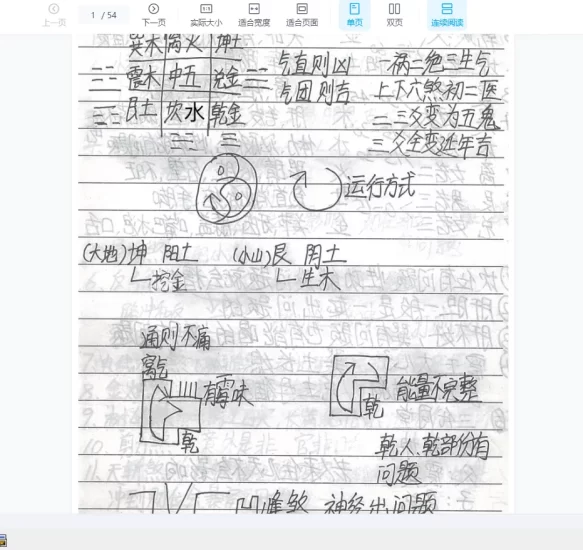 上一页 1 / 54 下一页 实际大小 适合宽度 适合页面 单页 双页 连续阅读
巽木 离火 坤土
震木 中五 兑金
艮土 坎水 乾金
气直则凶
气团则吉
一祸二绝三生气
上下六煞初二医
二三爻变为五鬼
三爻全变延年吉
运行方式
(大地)坤 阳土 (小山)艮 阴土
挖金 生木
通则不痛
离乾
有霉味
乾
能量不完整
乾
乾人、乾部份有
问题
凹峰煞 神经出问题